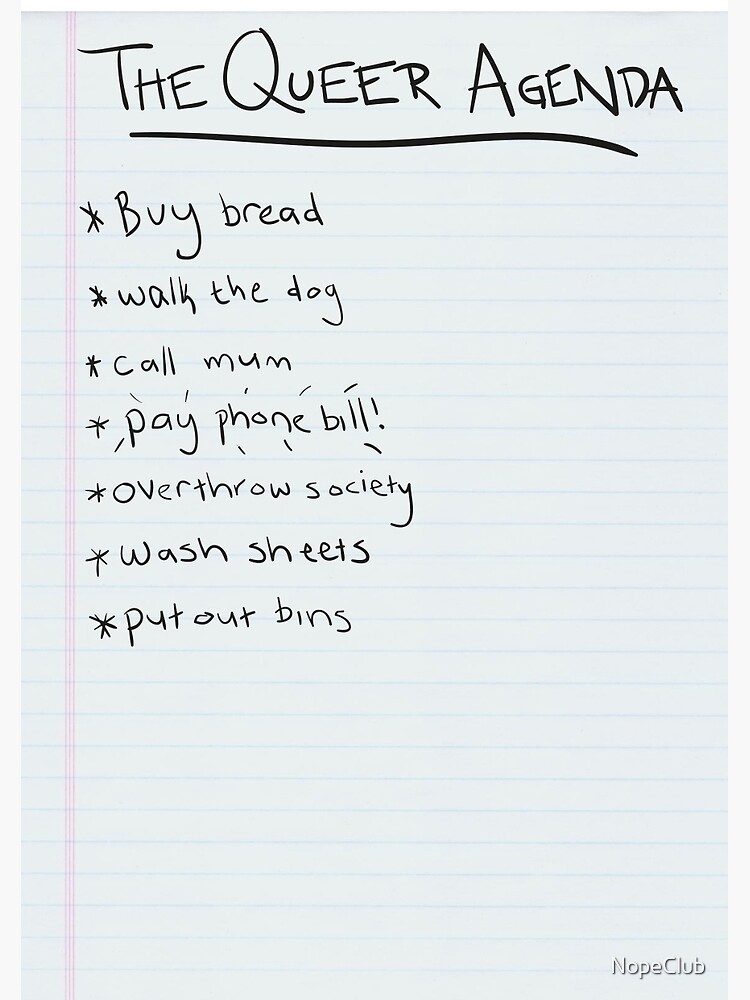 THE QUEER AGENDA
* Buy bread
* walk the dog
* call mum
* pay phone bill!
* overthrow society
* wash sheets
* put out bins
NopeClub